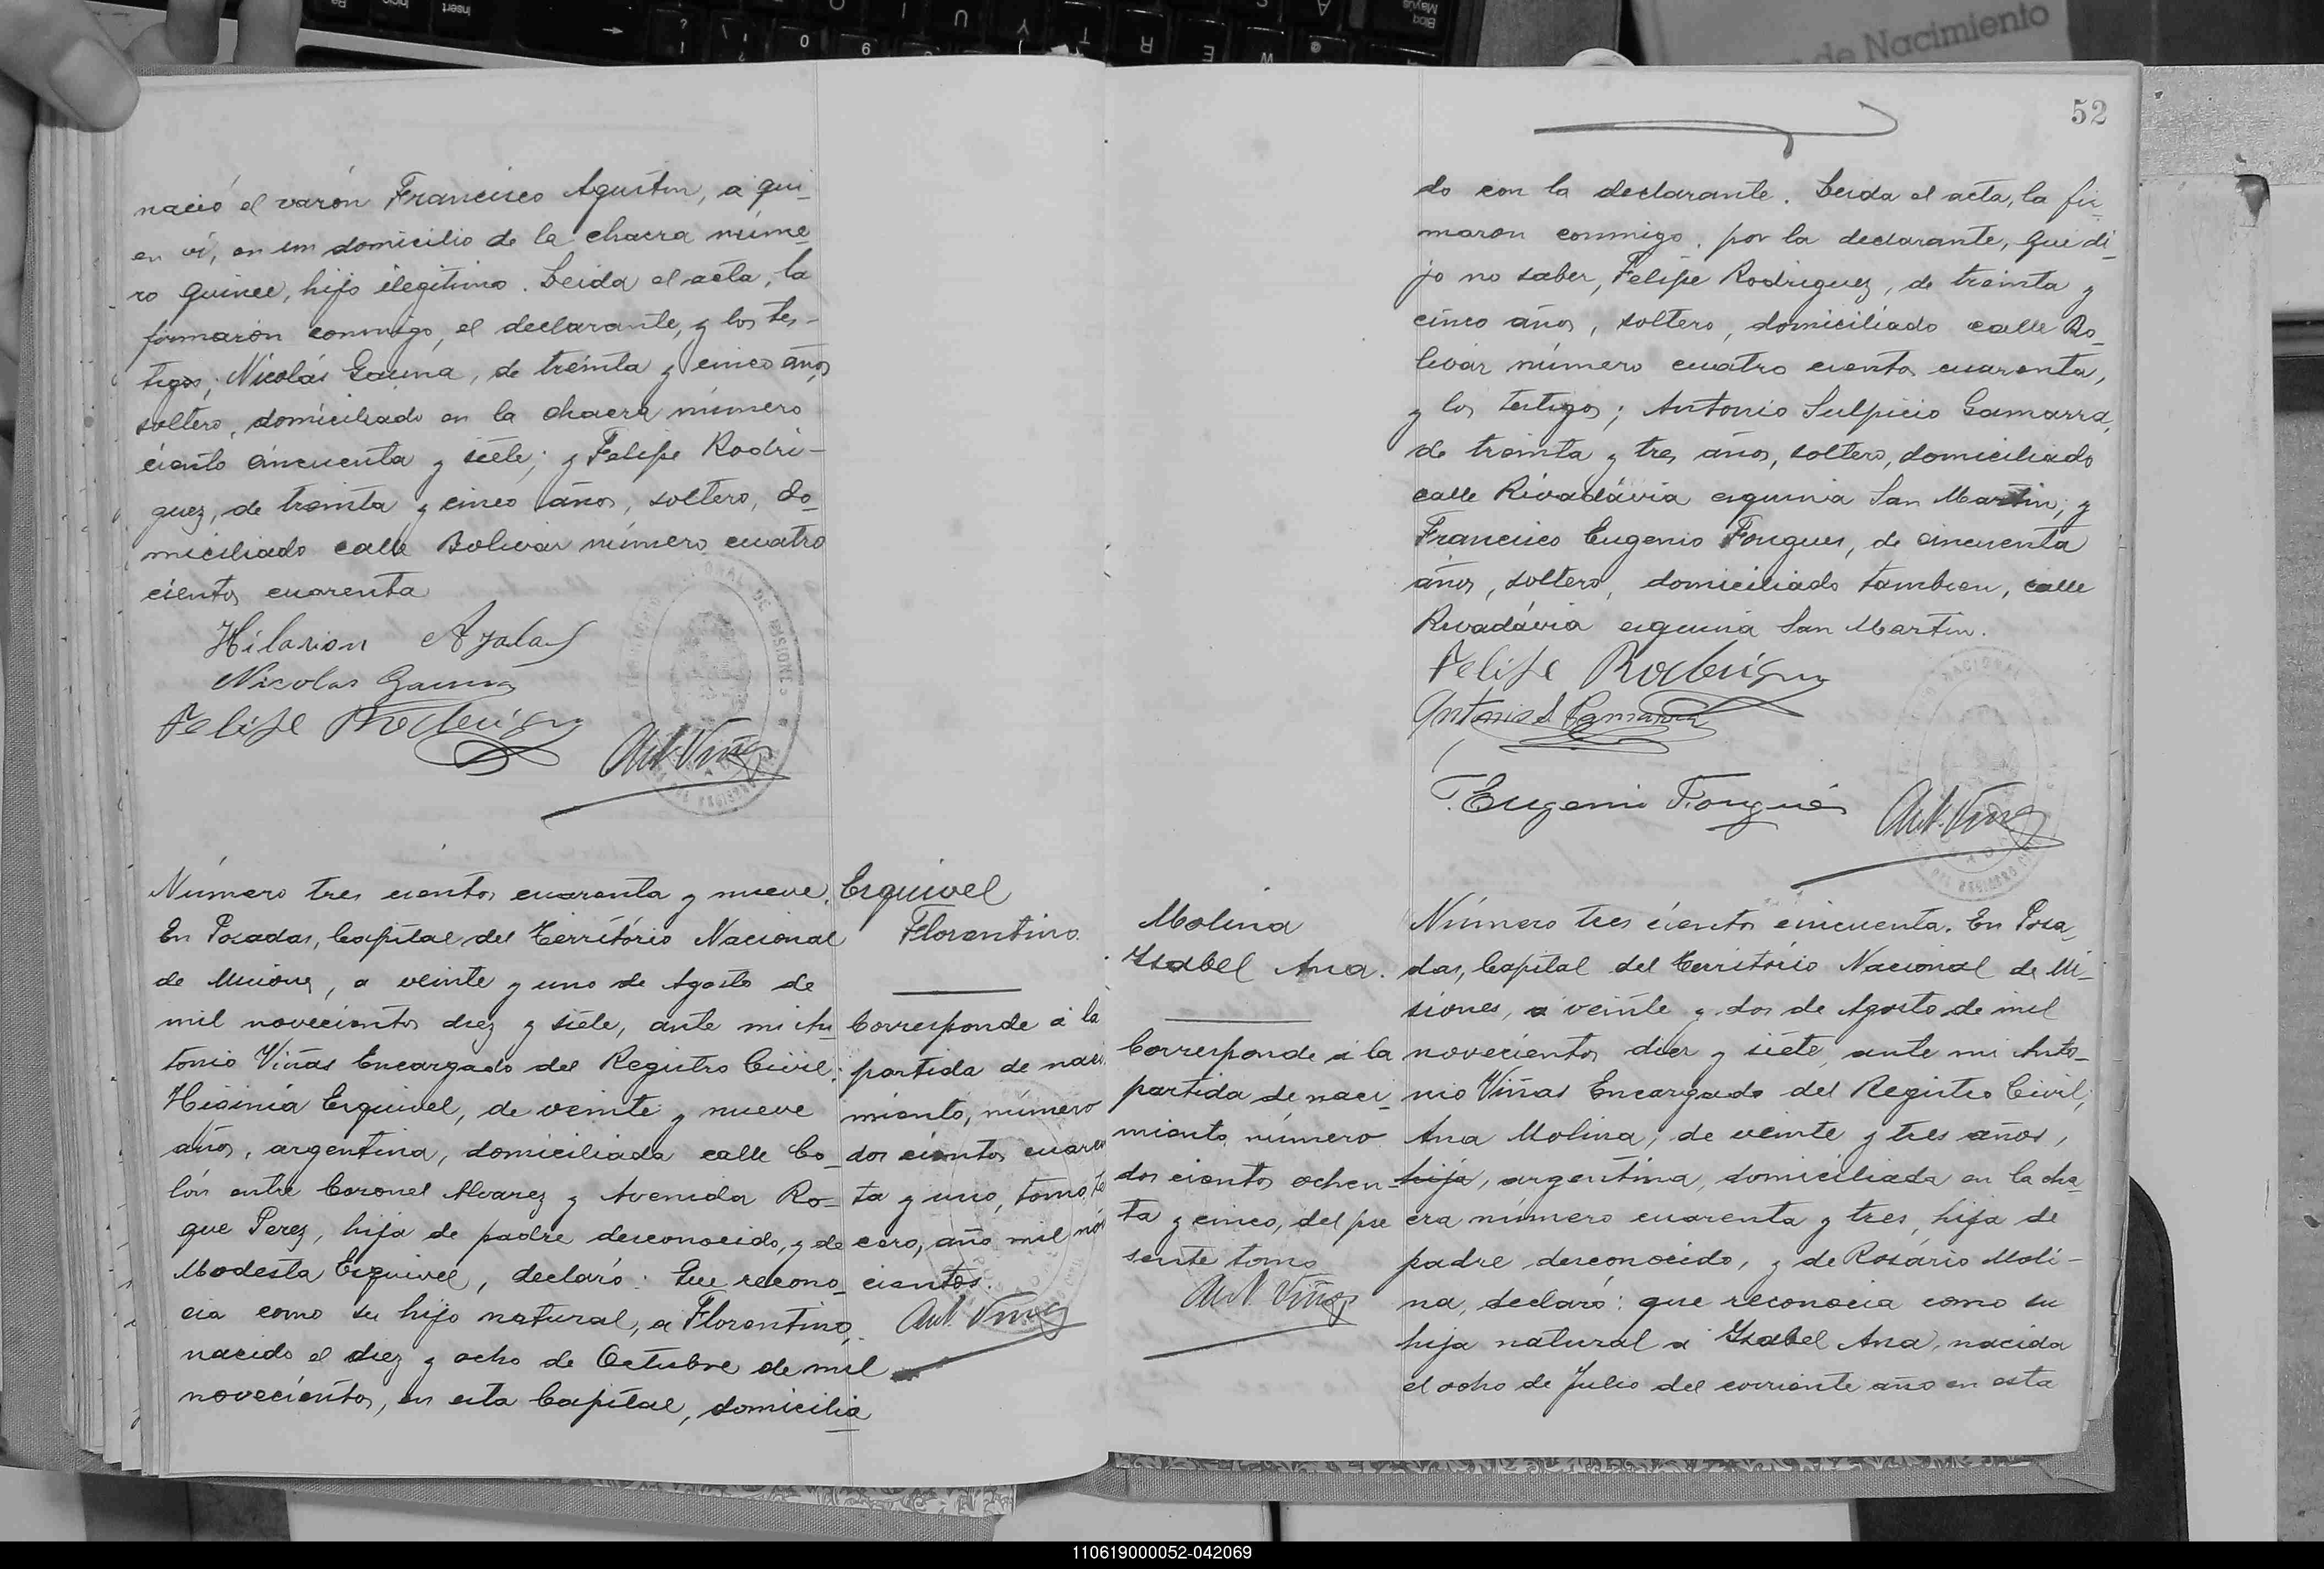 52
nació el varón Francisco Agustin, a qui-
en vi, en un domicilio de la chacra núme-
ro quince, hijo ilegitimo. Leida el acta, la
firmaron conmigo, el declarante, y los tes-
tigos; Nicolás Gauna, de treinta y cinco años,
soltero, domiciliado en la chacra número
ciento cincuenta y siete; y Felipe Rodri-
guez, de treinta y cinco años, soltero, do-
miciliado calle Bolivar número cuatro
cientos cuarenta
Hilarion Ayala
Nicolas Gauna
Felipe Rodriguez
Ant. Viñas
Número tres cientos cuarenta y nueve.
En Posadas, Capital del Território Nacional
de Misiones, a veinte y uno de Agosto de
mil novecientos diez y siete, ante mi An-
tonio Viñas Encargado del Registro Civil:
Higinia Esquivel, de veinte y nueve
años, argentina, domiciliada calle Co-
lón entre Coronel Alvarez y Avenida Ro-
que Perez, hija de padre desconocido, y de
Modesta Esquivel, declaró: Que recono-
cia como su hijo natural, a Florentino,
nacido el diez y ocho de Octubre de mil
novecientos, en esta Capital, domicilia
Esquivel
Florentino.
Corresponde á la
partida de naci
miento, número
dos cientos cuaren
ta y uno, tomo, te
cero, año mil nó
cientos.
Ant. Viñas
do con la declarante. Leida el acta, la fir-
maron conmigo, por la declarante, que di-
jo no saber, Felipe Rodriguez, de treinta y
cinco años, soltero, domiciliado calle Bo-
livar número cuatro cientos cuarenta,
y los testigos; Antonio Sulpicio Gamarra,
de treinta y tres años, soltero, domiciliado
calle Rivadávia esquina San Martin; y
Francisco Eugenio Fougues, de cincuenta
años, soltero, domiciliado tambien, calle
Rivadávia esquina San Martin.
Felipe Rodriguez
Antonio S. Gamarra
F. Eugenio Fougués
Ant. Viñas
Molina
Ysabel Ana.
Corresponde á la
partida de naci-
miento número
dos cientos ochen-
ta y cinco, del pre
sente tomo
Ant. Viñas
Número tres cientos cincuenta. En Posa-
das, Capital del Território Nacional de Mi-
siones, a veinte y dos de Agosto de mil
novecientos diez y siete, ante mi Anto-
nio Viñas Encargado del Registro Civil;
Ana Molina, de veinte y tres años,
hija, argentina, domiciliada en la cha-
cra número cuarenta y tres, hija de
padre desconocido, y de Rosário Moli-
na, declaró: que reconocia como su
hija natural a Ysabel Ana, nacida
el ocho de Julio del corriente año en esta
de Nacimiento
110619000052-042069